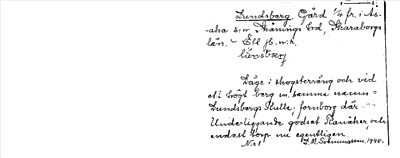 Lundsberg. Gård 1/4 fr. i As-
aka sn Skånings hd, Skaraborgs
län. - Ett jb. n:r.
lünsberj
Läge i skogsterräng och vid
ett högt berg m. samma namn =
Lundsbergs Kulle, fornborg där.
Underliggande godset Ranåker, och
endast torp nu egentligen.
N:o 1 J. M. Salomonsson 1945.